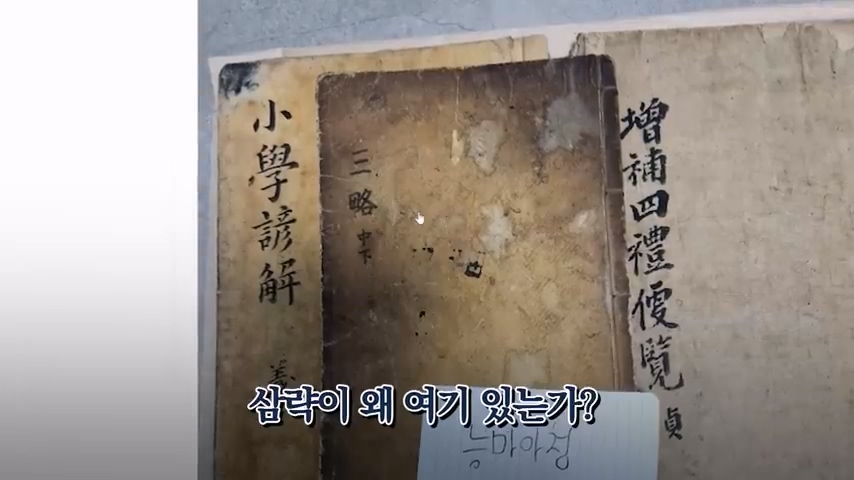 小學諺解
三略 中下
增補四禮便覽 貞
삼략이 왜 여기 있는가?
능마아정